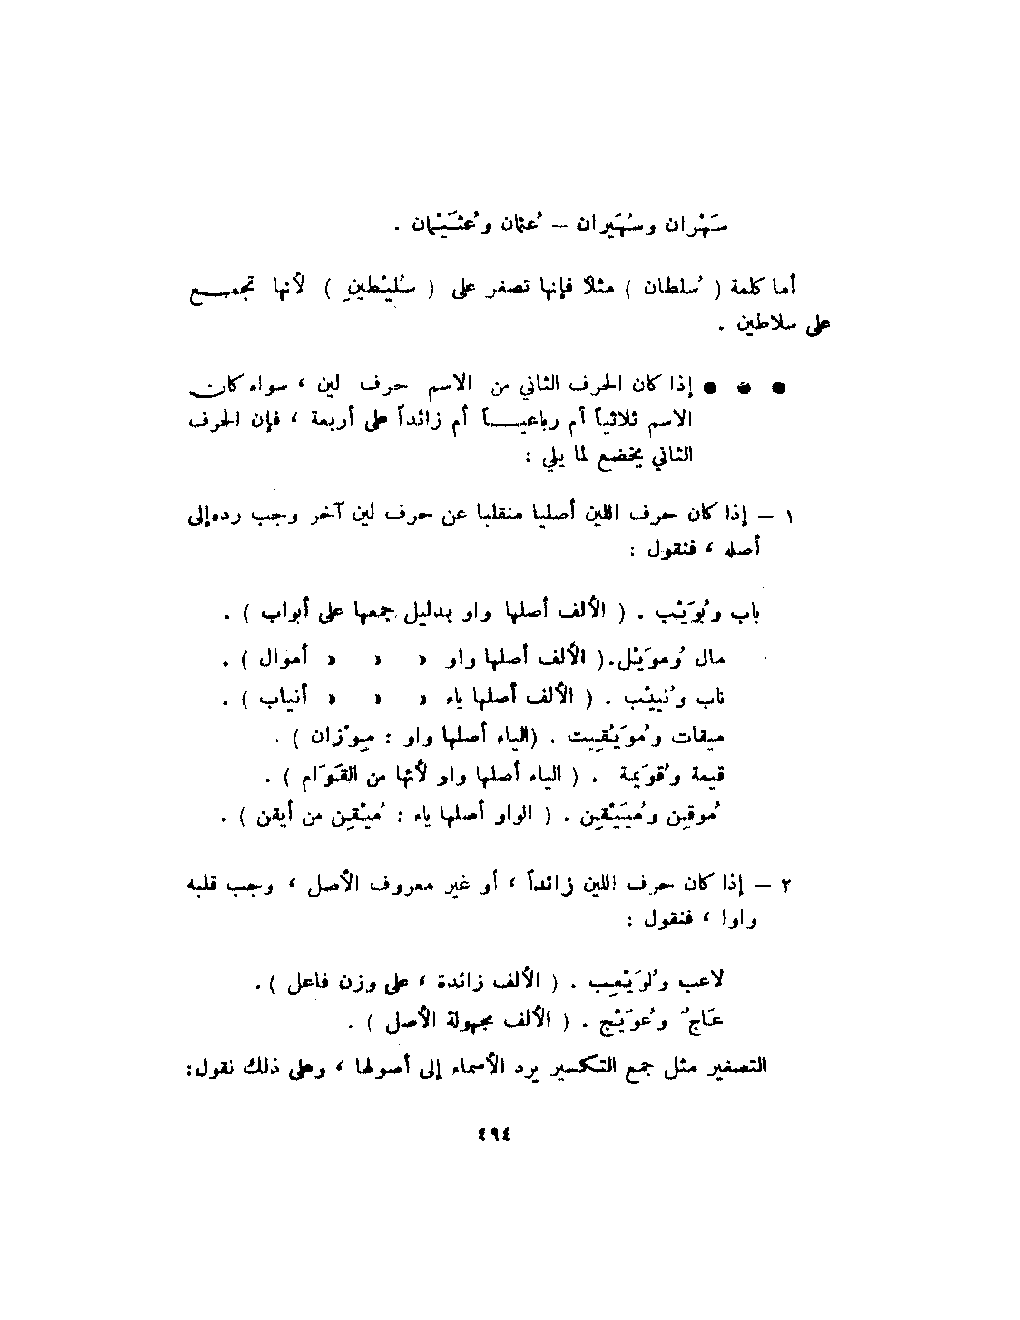 سَهْران وسُهَيْران – عُثمان وعُثَيْمان .
أما كلمة ( سُلطان ) مثلاً فإنها تصغر على ( سُلَيْطِين ) لأنها تجمـــع
على سلاطين .
● ● ● إذا كان الحرف الثاني من الاسم حرف لين ، سواء كان
الاسم ثلاثياً أم رباعيـــاً أم زائداً على أربعة ، فإن الحرف
الثاني يخضع لما يلي :
١ – إذا كان حرف اللين أصليا منقلبا عن حرف لين آخر وجب رده إلى
أصله ، فنقول :
باب وبُوَيْب . ( الألف أصلها واو بدليل جمعها على أبواب ) .
مال ومُوَيْل. ( الألف أصلها واو » » » أموال ) .
ناب ونُيَيْب . ( الألف أصلها ياء » » » أنياب ) .
ميقات ومُوَيْقِيت . (الياء أصلها واو : مِوْزان ) .
قيمة وقُوَيمة . ( الياء أصلها واو لأنها من القَوَام ) .
مُوقِن ومُيَيْقِن . ( الواو أصلها ياء : مُيْقِن من أيقن ) .
٢ – إذا كان حرف اللين زائداً ، أو غير معروف الأصل ، وجب قلبه
واوا ، فنقول :
لاعب ولُوَيْعِب . ( الألف زائدة ، على وزن فاعل ) .
عَاجٌ وعُوَيْج . ( الألف مجهولة الأصل ) .
التصغير مثل جمع التكسير يرد الأسماء إلى أصولها ، وعلى ذلك نقول:
٤٩٤